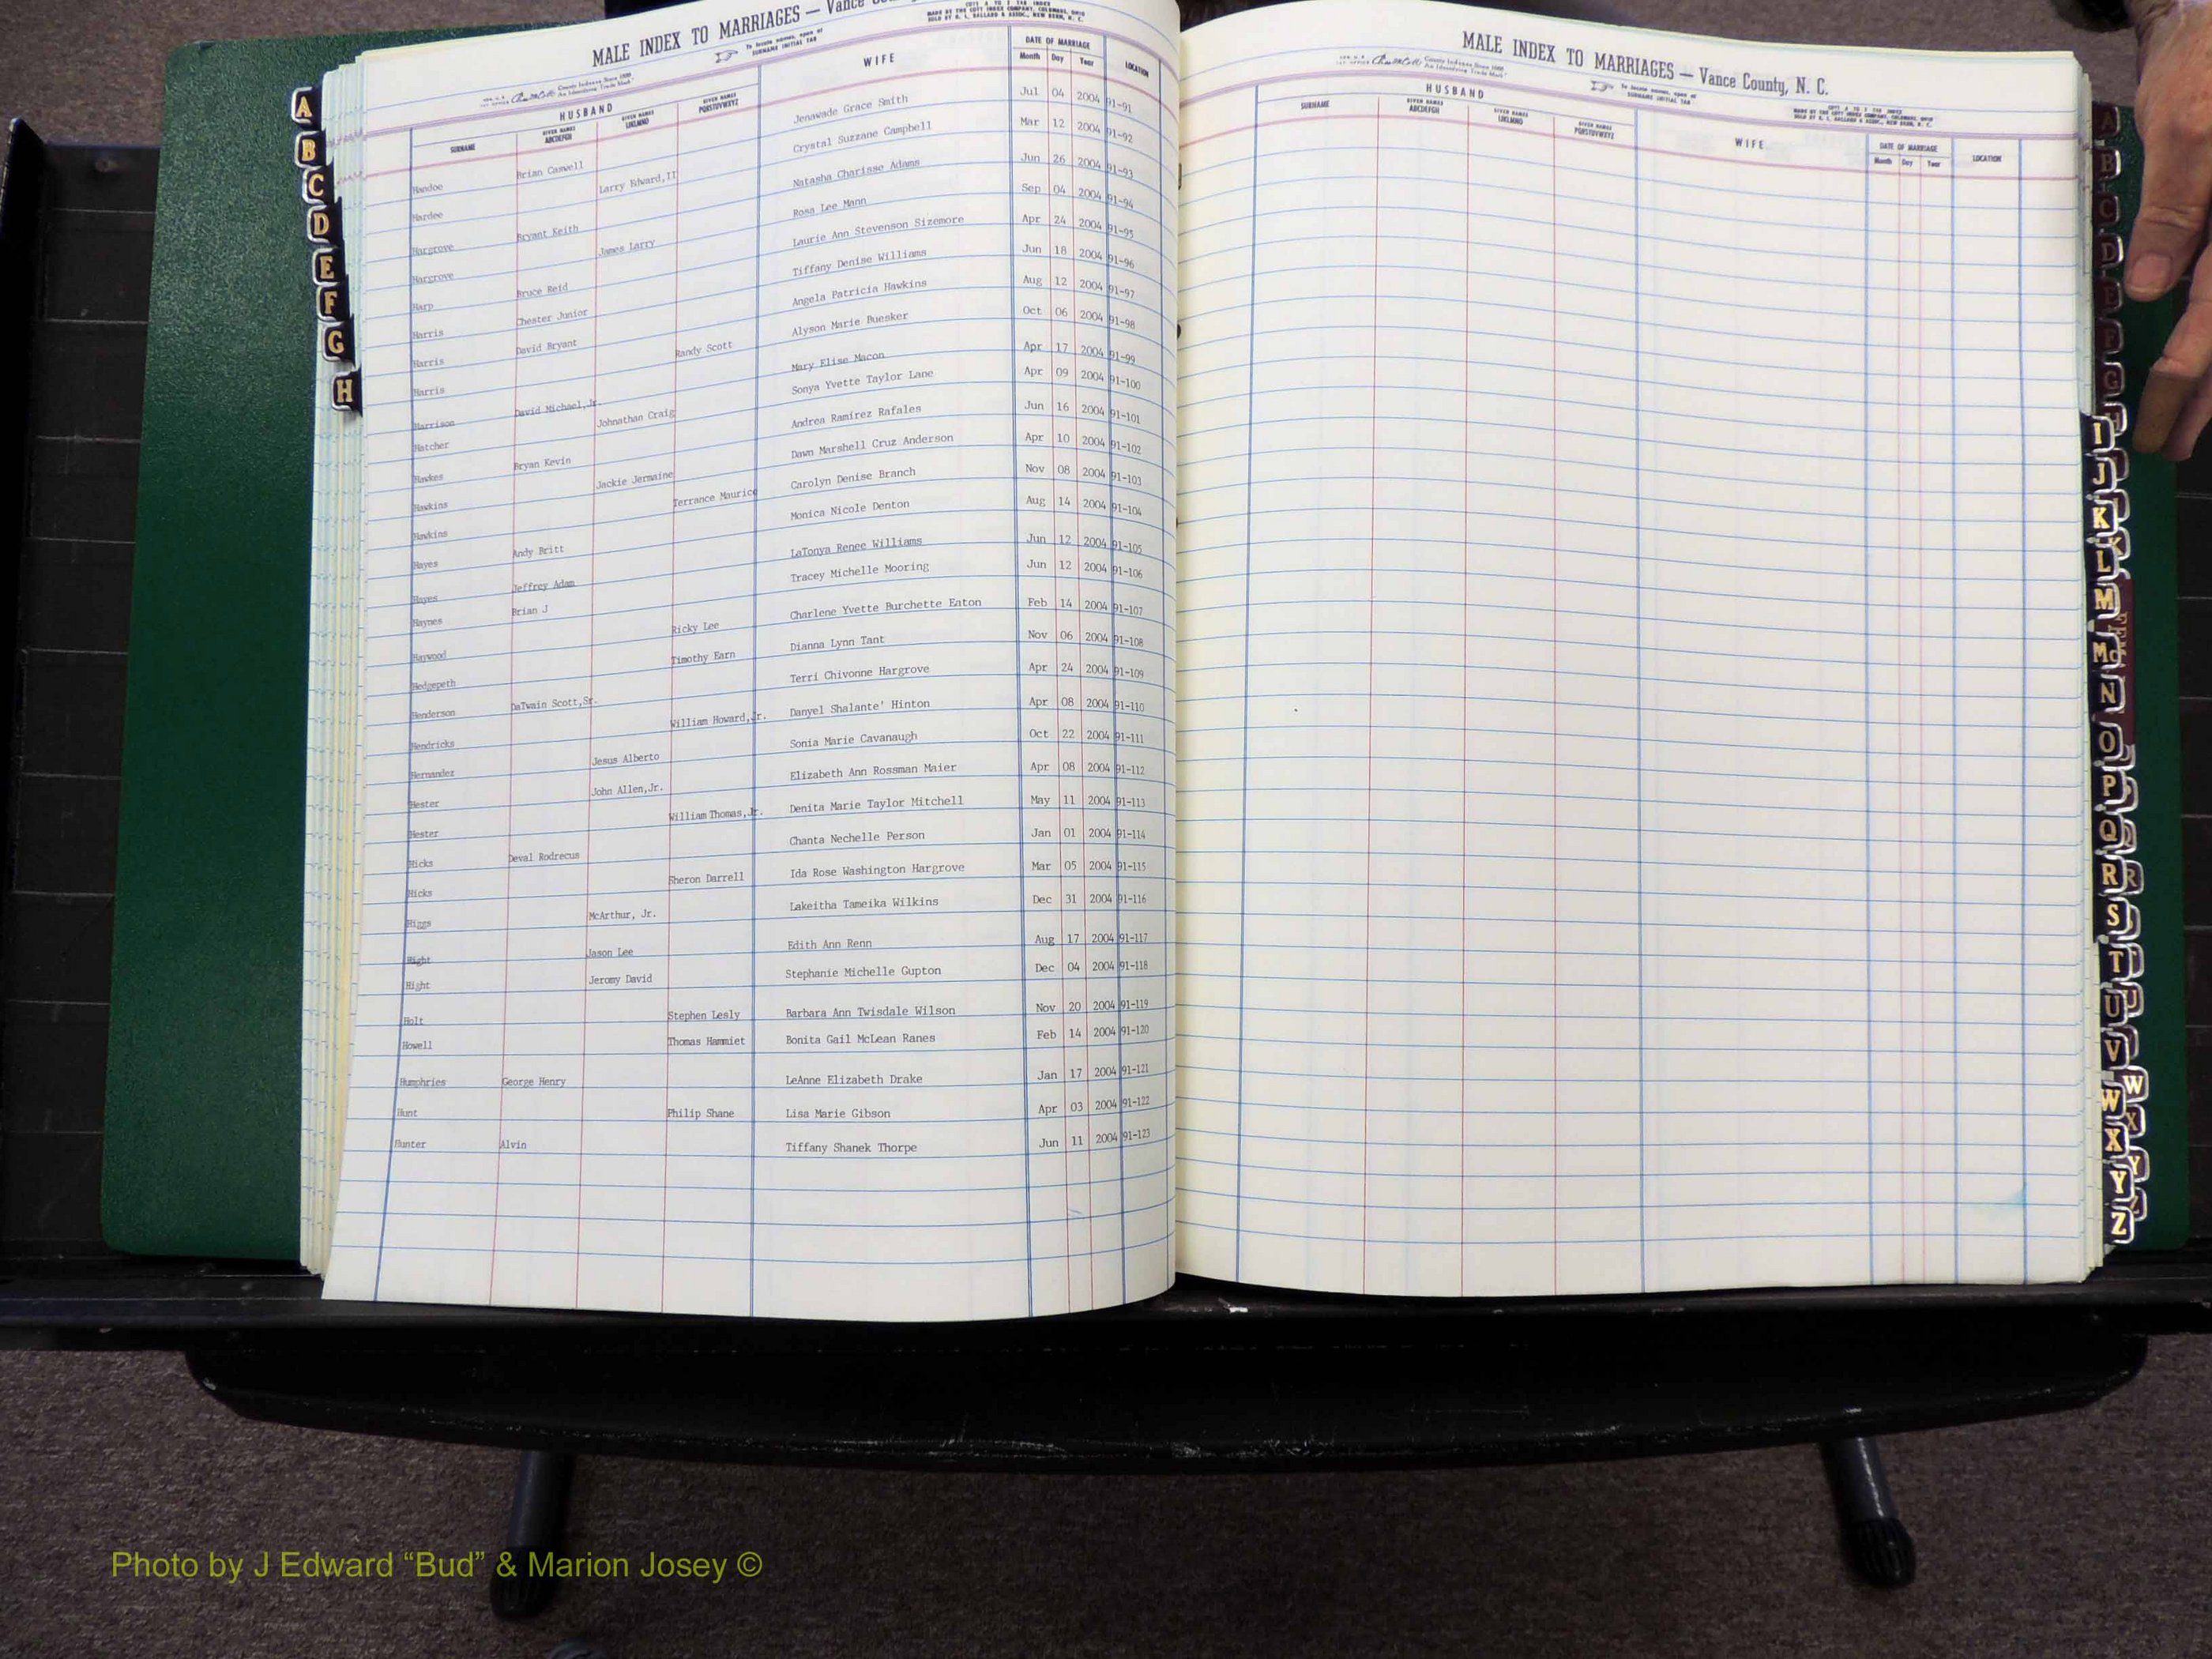 MALE INDEX TO MARRIAGES — Vance
To locate names, open at
SURNAME INITIAL TAB
HUSBAND WIFE DATE OF MARRIAGE LOCATION
SURNAME GIVEN NAMES ABCDEFGH GIVEN NAMES IJKLMNO GIVEN NAMES PQRSTUVWXYZ Month Day Year
Handoe Brian Caswell Jenawade Grace Smith Jul 04 2004 91-91
Hardee Larry Edward,II Crystal Suzzane Campbell Mar 12 2004 91-92
Hargrove Bryant Keith Natasha Charisse Adams Jun 26 2004 91-93
Hargrove James Larry Rosa Lee Mann Sep 04 2004 91-94
Harp Bruce Reid Laurie Ann Stevenson Sizemore Apr 24 2004 91-95
Harris Chester Junior Tiffany Denise Williams Jun 18 2004 91-96
Harris David Bryant Angela Patricia Hawkins Aug 12 2004 91-97
Harris Randy Scott Alyson Marie Buesker Oct 06 2004 91-98
Harrison David Michael,Jr. Mary Elise Macon Apr 17 2004 91-99
Hatcher Johnathan Craig Sonya Yvette Taylor Lane Apr 09 2004 91-100
Hawkes Bryan Kevin Andrea Ramirez Rafales Jun 16 2004 91-101
Hawkins Jackie Jermaine Dawn Marshell Cruz Anderson Apr 10 2004 91-102
Hawkins Terrance Maurice Carolyn Denise Branch Nov 08 2004 91-103
Hayes Andy Britt Monica Nicole Denton Aug 14 2004 91-104
Hayes Jeffrey Adam LaTonya Renee Williams Jun 12 2004 91-105
Haynes Brian J Tracey Michelle Mooring Jun 12 2004 91-106
Haywood Ricky Lee Charlene Yvette Burchette Eaton Feb 14 2004 91-107
Hedgepeth Timothy Earn Dianna Lynn Tant Nov 06 2004 91-108
Henderson DaTwain Scott,Sr. Terri Chivonne Hargrove Apr 24 2004 91-109
Hendricks William Howard,Jr. Danyel Shalante' Hinton Apr 08 2004 91-110
Hernandez Jesus Alberto Sonia Marie Cavanaugh Oct 22 2004 91-111
Hester John Allen,Jr. Elizabeth Ann Rossman Maier Apr 08 2004 91-112
Hester William Thomas,Jr. Denita Marie Taylor Mitchell May 11 2004 91-113
Hicks Deval Rodrecus Chanta Nechelle Person Jan 01 2004 91-114
Hicks Sheron Darrell Ida Rose Washington Hargrove Mar 05 2004 91-115
Higgs McArthur, Jr. Lakeitha Tameika Wilkins Dec 31 2004 91-116
Hight Jason Lee Edith Ann Renn Aug 17 2004 91-117
Hight Jeromy David Stephanie Michelle Gupton Dec 04 2004 91-118
Holt Stephen Lesly Barbara Ann Twisdale Wilson Nov 20 2004 91-119
Howell Thomas Hammiet Bonita Gail McLean Ranes Feb 14 2004 91-120
Humphries George Henry LeAnne Elizabeth Drake Jan 17 2004 91-121
Hunt Philip Shane Lisa Marie Gibson Apr 03 2004 91-122
Hunter Alvin Tiffany Shanek Thorpe Jun 11 2004 91-123
A
B
C
D
E
F
G
H
MALE INDEX TO MARRIAGES — Vance County, N. C.
To locate names, open at
SURNAME INITIAL TAB
HUSBAND WIFE DATE OF MARRIAGE LOCATION
SURNAME GIVEN NAMES ABCDEFGH GIVEN NAMES IJKLMNO GIVEN NAMES PQRSTUVWXYZ Month Day Year
A
B
C
D
E
F
G
H
I
J
K
L
M
Mc
N
O
P
Q
R
S
T
U
V
W
X
Y
Z
Photo by J Edward “Bud” & Marion Josey ©